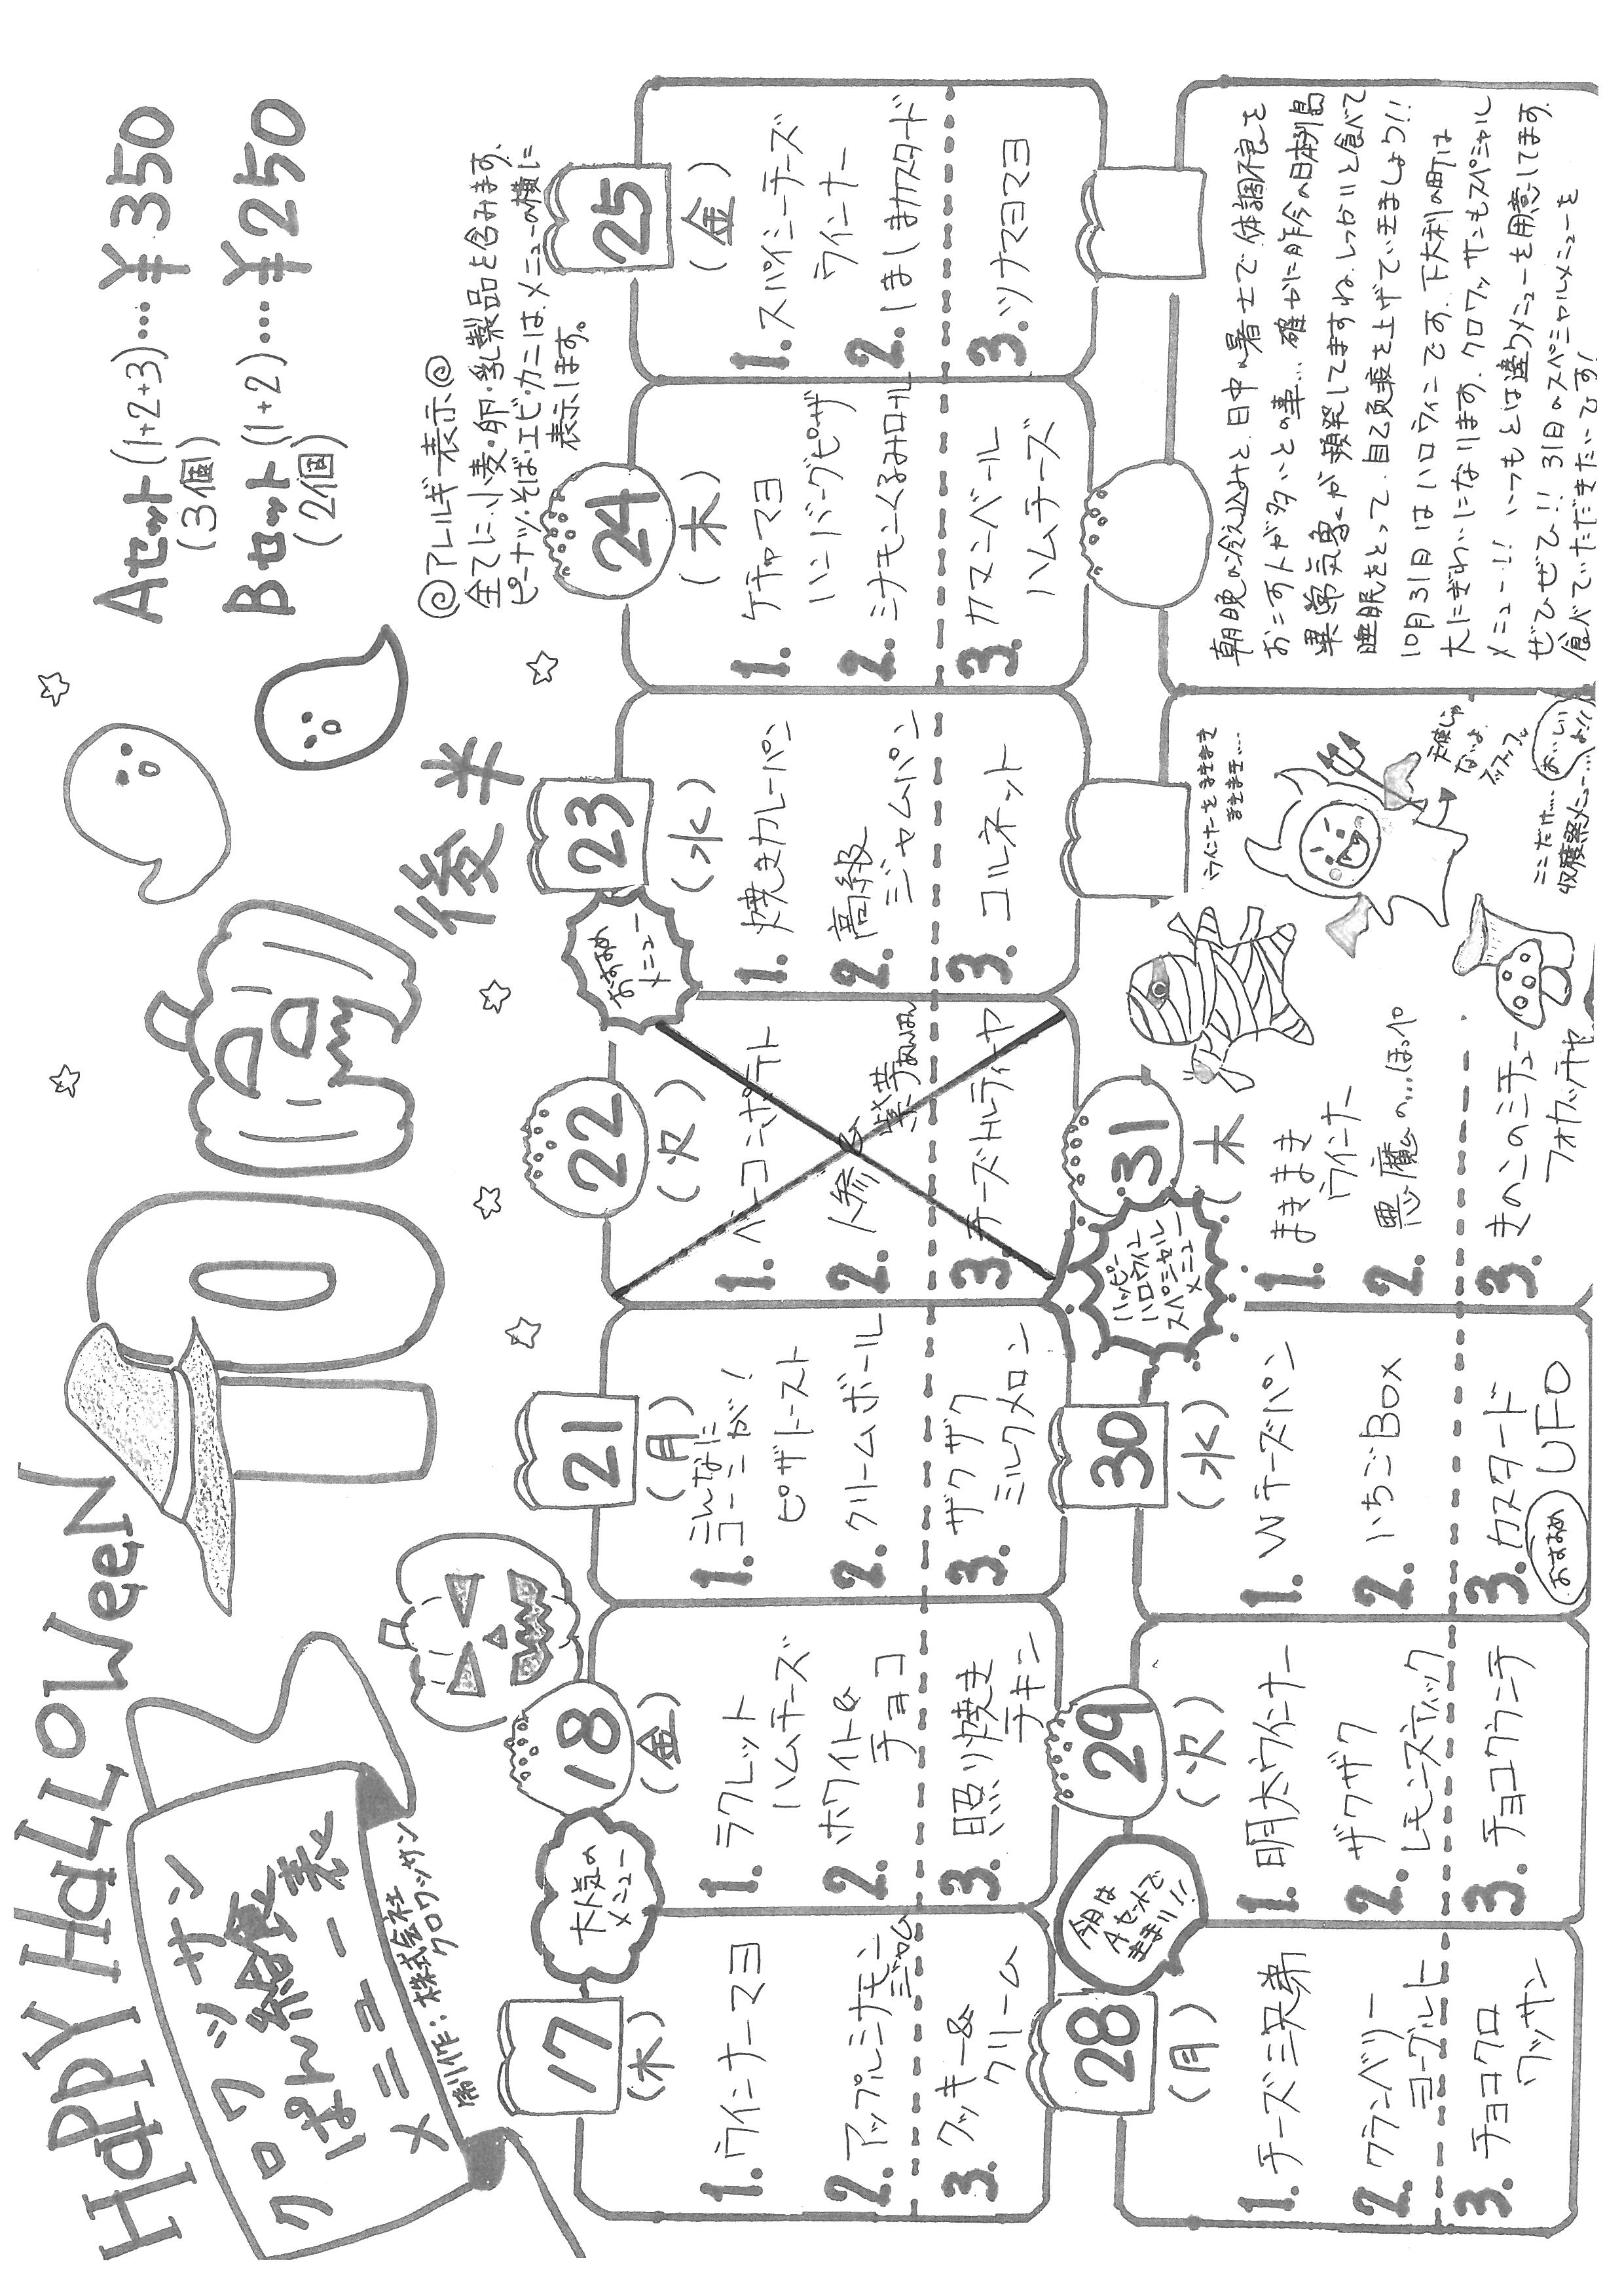 HaPPY HaLLoWeeN
クロワッサン
ぱん給食
メニュー表
制作:株式会社
クロワッサン
10月
後半
Aセット(1+2+3)…¥350
(3個)
Bセット(1+2)…¥250
(2個)
◎アレルギー表示◎
全てに小麦・卵・乳製品を含みます。
ピーナッツ・そば・エビ・カニは、メニューの横に
表示します。
17
(木)
1. ウインナーマヨ
2. アップルシナモン
ジャム
3. クッキー&
クリーム
大人気の
メニュー
18
(金)
1. ラクレット
ハムチーズ
2. ホワイト&
チョコ
3. 照り焼き
チキン
21
(月)
1. こんなに
コーンが!
ピザトースト
2. クリームボール
3. ザクザク
ミルクメロン
22
(火)
1. ベーコンポテト
2. 人参
紫芋あんぱん
3. チーズトルティーヤ
おすすめ
メニュー
23
(水)
1. 焼きカレーパン
2. 高級
ジャムパン
3. コルネット
24
(木)
1. ケチャマヨ
ハンバーグピザ
2. シナモンくるみロール
3. カマンベール
ハムチーズ
25
(金)
1. スパイシーチーズ
ウインナー
2. しましまカスタード
3. ツナマヨマヨ
28
(月)
1. チーズ三兄弟
2. クランベリー
ヨーグルト
3. チョコクロ
ワッサン
今日は
Aセットで
きまり!!
29
(火)
1. 明太ウインナー
2. ザクザク
レモンスティック
3. チョコクランチ
30
(水)
1. Wチーズパン
2. いちごBox
3. カスタード
UFO
おすすめ
ハッピー
ハロウィン
スペシャル
メニュー
31
木
1. まきまき
ウインナー
2. 悪魔の…ほっぺ
3. きのこのシチュー
フォカッチャ
ウインナーをまきまき
まきまき….
天使じゃ
ないよ
ここだけ……
収穫祭メニュー…
おいしい
よ!!
朝晩の冷え込みと、日中の暑さで、体調不良を
おこす人が多いとの事…確かに昨今の日本列島
異常気象が頻発してますね。しっかりと食べて
睡眠をとって、自己免疫を上げていきましょう!!
10月31日はハロウィンです。下大利の町は
大にぎわいになります。クロワッサンもスペシャル
メニュー!! いつもとは違うメニューを用意してます。
ぜひぜひ!! 31日のスペシャルメニューを
食べていただきたいです!